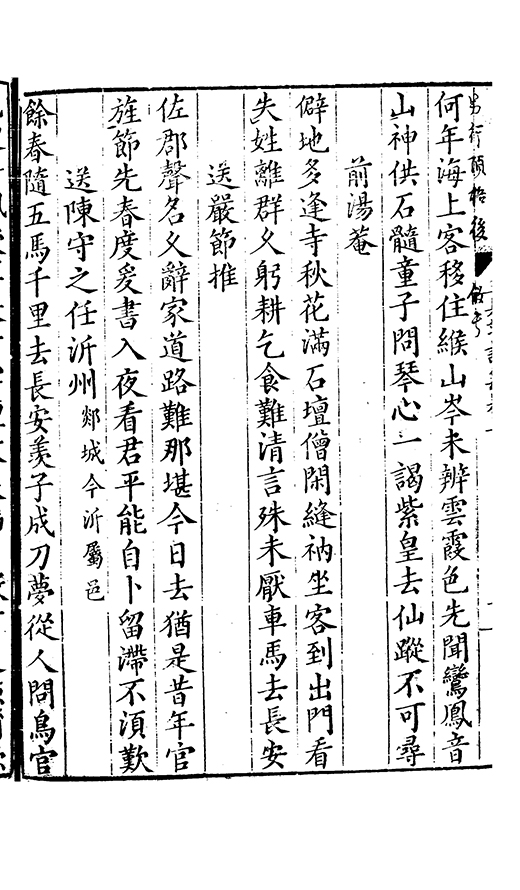 另行頂格後
何年海上客移住緱山岑未辨雲霞色先聞鸞鳳音
山神供石髓童子問琴心一謁紫皇去仙蹤不可尋
前湯菴
僻地多逢寺秋花滿石壇僧閑縫衲坐客到出門看
失姓離群久躬耕乞食難清言殊未厭車馬去長安
送嚴節推
佐郡聲名久辭家道路難那堪今日去猶是昔年官
旌節先春度爰書入夜看君平能自卜留滯不須歎
送陳守之任沂州 郯城今沂屬邑
餘春隨五馬千里去長安羨子成刀夢從人問鳥官